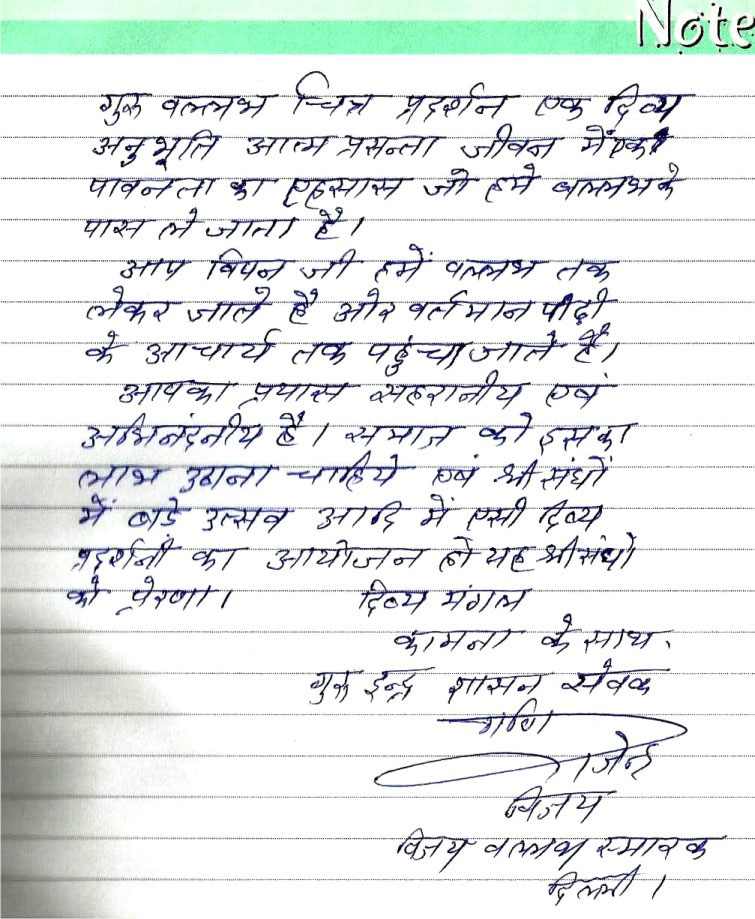 Note
गुरू वल्लभ चित्र प्रदर्शन एक दिव्य
अनुभूति आत्म प्रसन्ता जीवन में एक
पावनता का एहसास जो हमे वल्लभ के
पास ले जाता है।
आप विपन जी हमें वल्लभ तक
लेकर जाते है और वर्तमान पीढ़ी
के आचार्य तक पहुंचा जाते है।
आपका प्रयास सहरानीय एवं
अभिनंदनीय है। समाज को इसका
लाभ उठाना चाहिये एवं श्री संघों
में बडे उत्सव आदि में एसी दिव्य
प्रदर्शनी का आयोजन हो यह श्री संघो
को प्रेरणा। दिव्य मंगल
कामना के साथ.
गुरू इन्द्र शासन सेवक
गणि
राजेन्द्र
विजय
विजय वल्लभ स्मारक
दिल्ली।